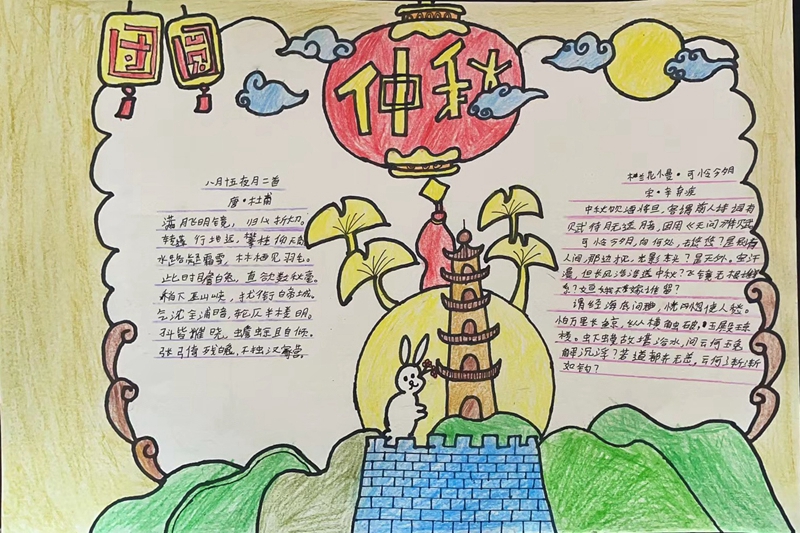 团圆
仲秋
八月十五夜月二首
唐·杜甫
满月飞明镜，归心折大刀。
转蓬行地远，攀桂仰天高
水路疑霜雪，林栖见羽毛。
此时瞻白兔，直欲数秋毫。
稍下巫山峡，犹衔白帝城。
气沈全浦暗，轮仄半楼明。
刁斗皆催晓，蟾蜍且自倾。
张弓倚残魄，不独汉家营。
木兰花慢·可怜今夕月
宋·辛弃疾
中秋饮酒将旦，客谓前人诗词有
赋待月无送月者，因用《天问》体赋
可怜今夕月，向何处，去悠悠？是别有
人间，那边才见，光影东头？是天外。空汗
漫，但长风浩浩送中秋？飞镜无根谁
系？姮娥不嫁谁留？
谓经海底问无由，恍惚使人愁。
怕万里长鲸，纵横触破，玉殿琼
楼。虾蟆故堪浴水，问云何玉兔
解沉浮？若道都齐无恙，云何渐渐
如钩？